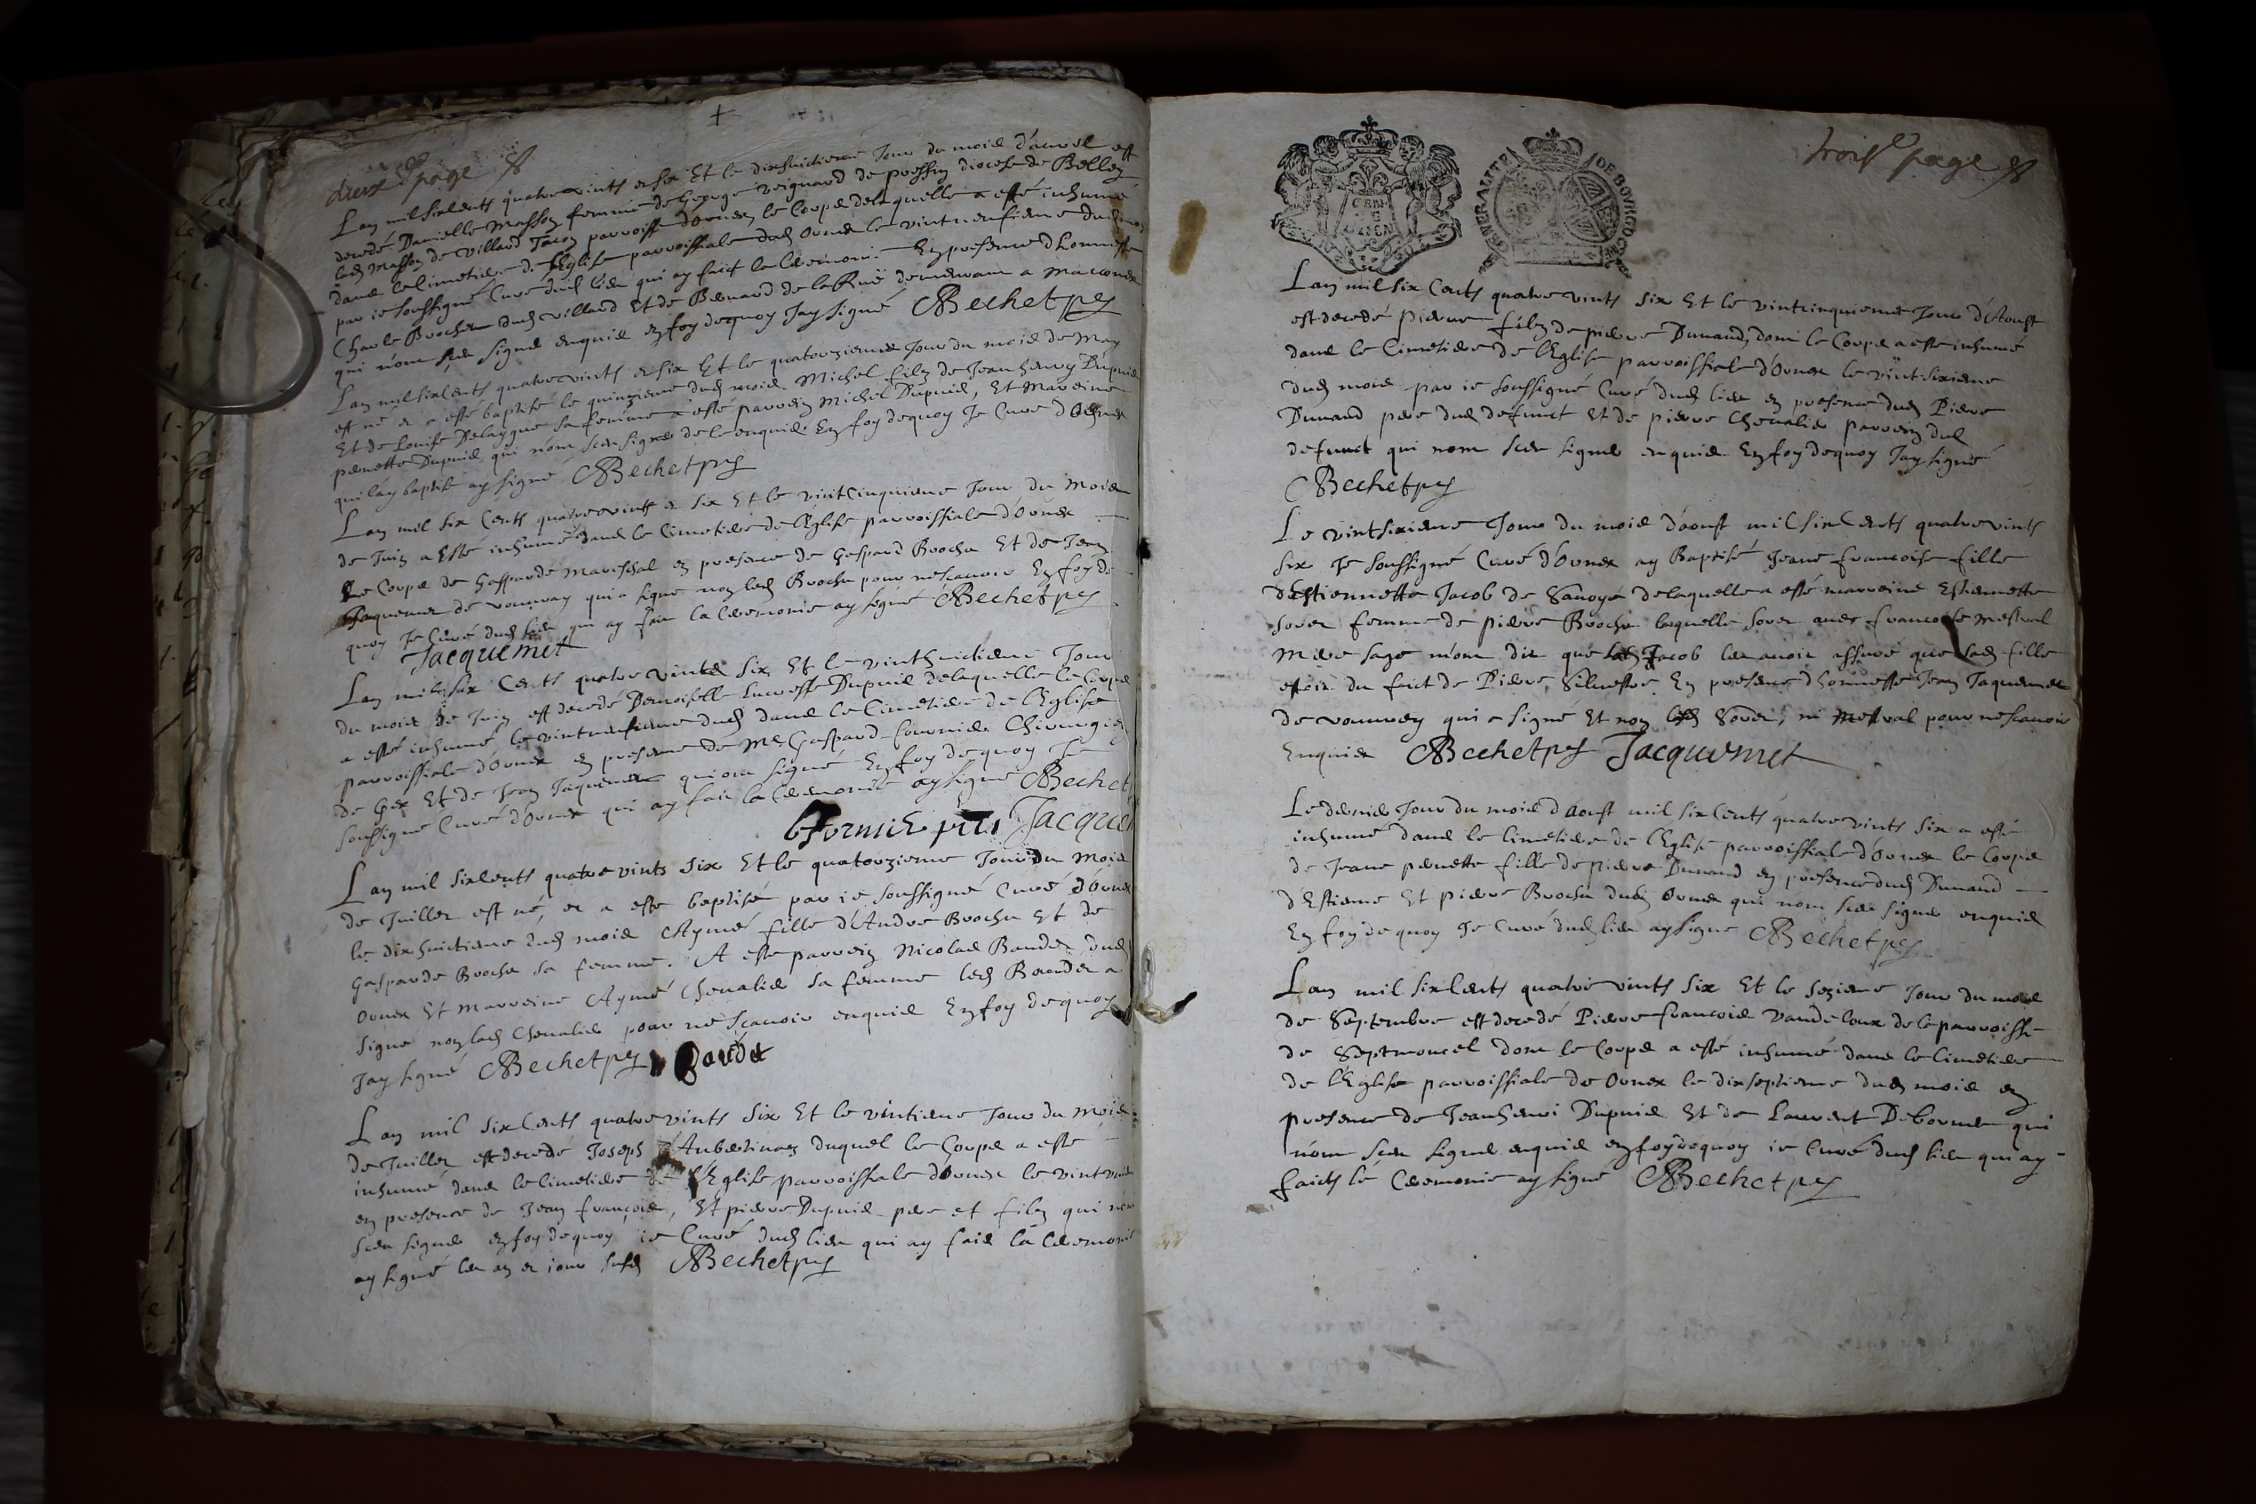 deux page
Lan mil six Cents quatre vints et six Et le dixhuictieme Jour du mois d'avril est
decedé Danielle Masson femme de George Reignard de pressin diocese de Belley
lad Masson de Villard Tacon parroisse d'ornex, le Corps de laquelle a esté inhumé
dans le Cimetiere de l'Eglise parroissiale dud Ornex le vintneufieme dud mois
par ie soussigné Curé dud lieu qui ay faict la Ceremonie En presence d'honneste
Charle Brochu dud Villard Et de Bernard de la Ruë demeurant a
qui n'ont sceu signé enquis en foy dequoy Jay signé CBechet pre
Lan mil six Cents quatre vints et six Et le quatorzieme Jour du mois de May
est né et a esté baptisé le quinzieme dud mois Michel filz de Jean henry Dupuis
Et de Louise Delaygue sa femme a esté parrein Michel Dupuis, Et Marreine
pernette Dupuis qui n'ont sceu signer de ce enquis. En foy dequoy Je Curé d'Ornex
qui lay baptisé ay signé CBechet pre
Lan mil six Cents quatre vints et six Et le vint Cinquieme Jour du Mois
de Juin a Esté inhumé dans le Cimetiere de l'Eglise parroissiale d'Ornex
Le Corps de Gasparde Mareschal en presence de Gaspard Brochu Et de Jean
Jaquemet de vouvray qui a signé non led Brochu pour ne scavoir En foy de
quoy Je Curé dud lieu qui ay fait la Ceremonie ay signé CBechet pre
Jacquemet
Lan mil six Cents quatre vints six Et le vinthuictieme Jour
du mois de Juin est decedé Demoiselle Lucresse Dupuis de laquelle le Corps
a esté inhumé le vintneufieme dud dans le Cimetiere de l'Eglise
parroissiale d'Ornex en presence de Me Gaspard Fournier Chirurgien
de Gex Et de Jean Jaquemet qui ont signé En foy de quoy Je
soussigné Curé d'Ornex qui ay fait la Ceremonie ay signé CBechet
Jacque
Lan mil six Cents quatre vints six Et le quatorzieme Jour du Mois
de Juillet est né, et a esté baptisé par ie soussigné Curé d'Ornex
le dixhuictieme dud mois Aymé fille d'Andre Brochu Et de
Gasparde Brochu sa femme. A esté parrein Nicolas Baudet dud
Ornex Et Marreine Aymé Chevalier sa femme led Baudet a
signé non lad Chevalier pour ne sçavoir enquis En foy de quoy
Jay signé CBechet pre Baudet
Lan mil six Cents quatre vints six Et le vintieme Jour du Mois
de Juillet est decedé Joseph duquel le Corps a esté
inhumé dans le Cimetiere de l'Eglise parroissiale d'Ornex le vint
en presence de Jean françois, Et pierre Dupuis pere et filz qui n'ont
sceu signer en foy dequoy ie Curé dud lieu qui ay faict la Ceremonie
ay signé les an et iour susd CBechet pre
trois page
GENERALITE DE BOURGOGNE
Lan mil six Cents quatre vints six Et le vintcinquieme Jour d'Aoust
est decedé pierre filz de pierre Dunand, dont le Corps a esté inhumé
dans le Cimetiere de l'Eglise parroissiale d'Ornex le vint sixieme
dud mois par ie soussigné Curé dud lieu en presence dud Pierre
Dunand pere dud defunct Et de pierre Chevalier parrein dud
defunct qui n'ont sceu signé enquis En foy dequoy Jay signé
CBechet pre
Le vintsixieme Jour du mois d'aoust mil six Cents quatre vints
six Je soussigné Curé d'Ornex ay Baptisé Jeane francoise fille
d'Estiennette Jacob de Savoye de laquelle a esté marreine Estiennette
Sover femme de pierre Brochu laquelle Sover avec francoise Mestral
Mere sage m'ont dit que lad Jacob leur avoit assuré que lad fille
estoit du faict de Pierre Silvestre En presence d'honneste Jean Jaquemet
de vouvray qui a signé Et non lesd Sover, ni Mestral pour ne scavoir
Enquis CBechet pre Jacquemet
Le dernier Jour du mois d'Aoust mil six Cents quatre vints six a esté
inhumé dans le Cimetiere de l'Eglise parroissiale d'Ornex le Corps
de Jeane pernette fille de pierre Dunand en presence dud Dunand
d'Estienne Et pierre Brochu dud Ornex qui n'ont sceu signer enquis
En foy de quoy Je Curé dud lieu ay signé CBechet pre
Lan mil six Cents quatre vints six Et le sezieme Jour du mois
de Septembre est decedé Pierre francois Vandeloux de la parroisse
de Septmoncel dont le Corps a esté inhumé dans le Cimetiere
de l'Eglise parroissiale de Ornex le dixseptieme dud mois en
presence de Jean henri Dupuis Et de Laurent Deborne qui
n'ont sceu signer enquis en foy dequoy ie Curé dud lieu qui ay
faicts la Ceremonie ay signé CBechet pre